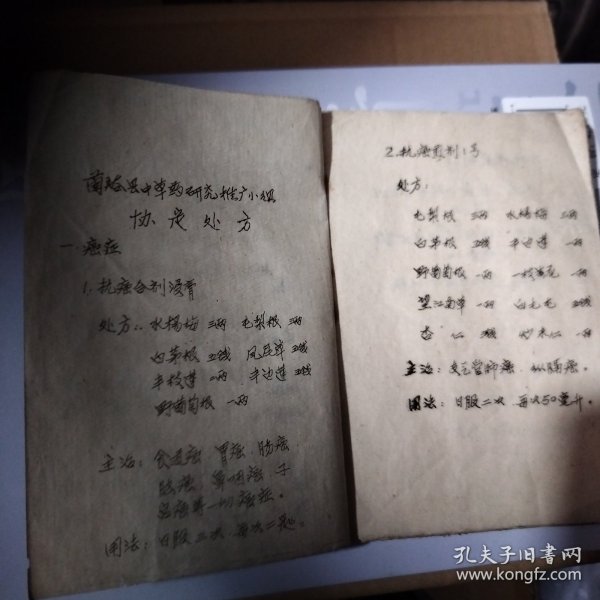 县中草药研究推广小组
协定处方
一、癌症
1.抗癌合剂浸膏
处方：水杨梅 二两 毛梨根 二两
白茅根 五钱 凤尾草 五钱
半枝莲 一两 半边莲 五钱
野葡萄根 一两
主治：食道癌 胃癌 肠癌
癌 鼻咽癌 子
宫癌等一切癌症。
用法：日服二次 每次二匙。
2.抗癌煎剂1号
处方：
毛梨根 二两 水杨梅 二两
白茅根 五钱 半边莲 一两
野葡萄根 一两 一枝黄花 一两
望江南草 一两 白毛 五钱
杏仁 三钱 一两
主治：支气管肺癌、纵膈癌。
用法：日服二次 每次50毫升。
孔夫子旧书网
www.kongfz.com